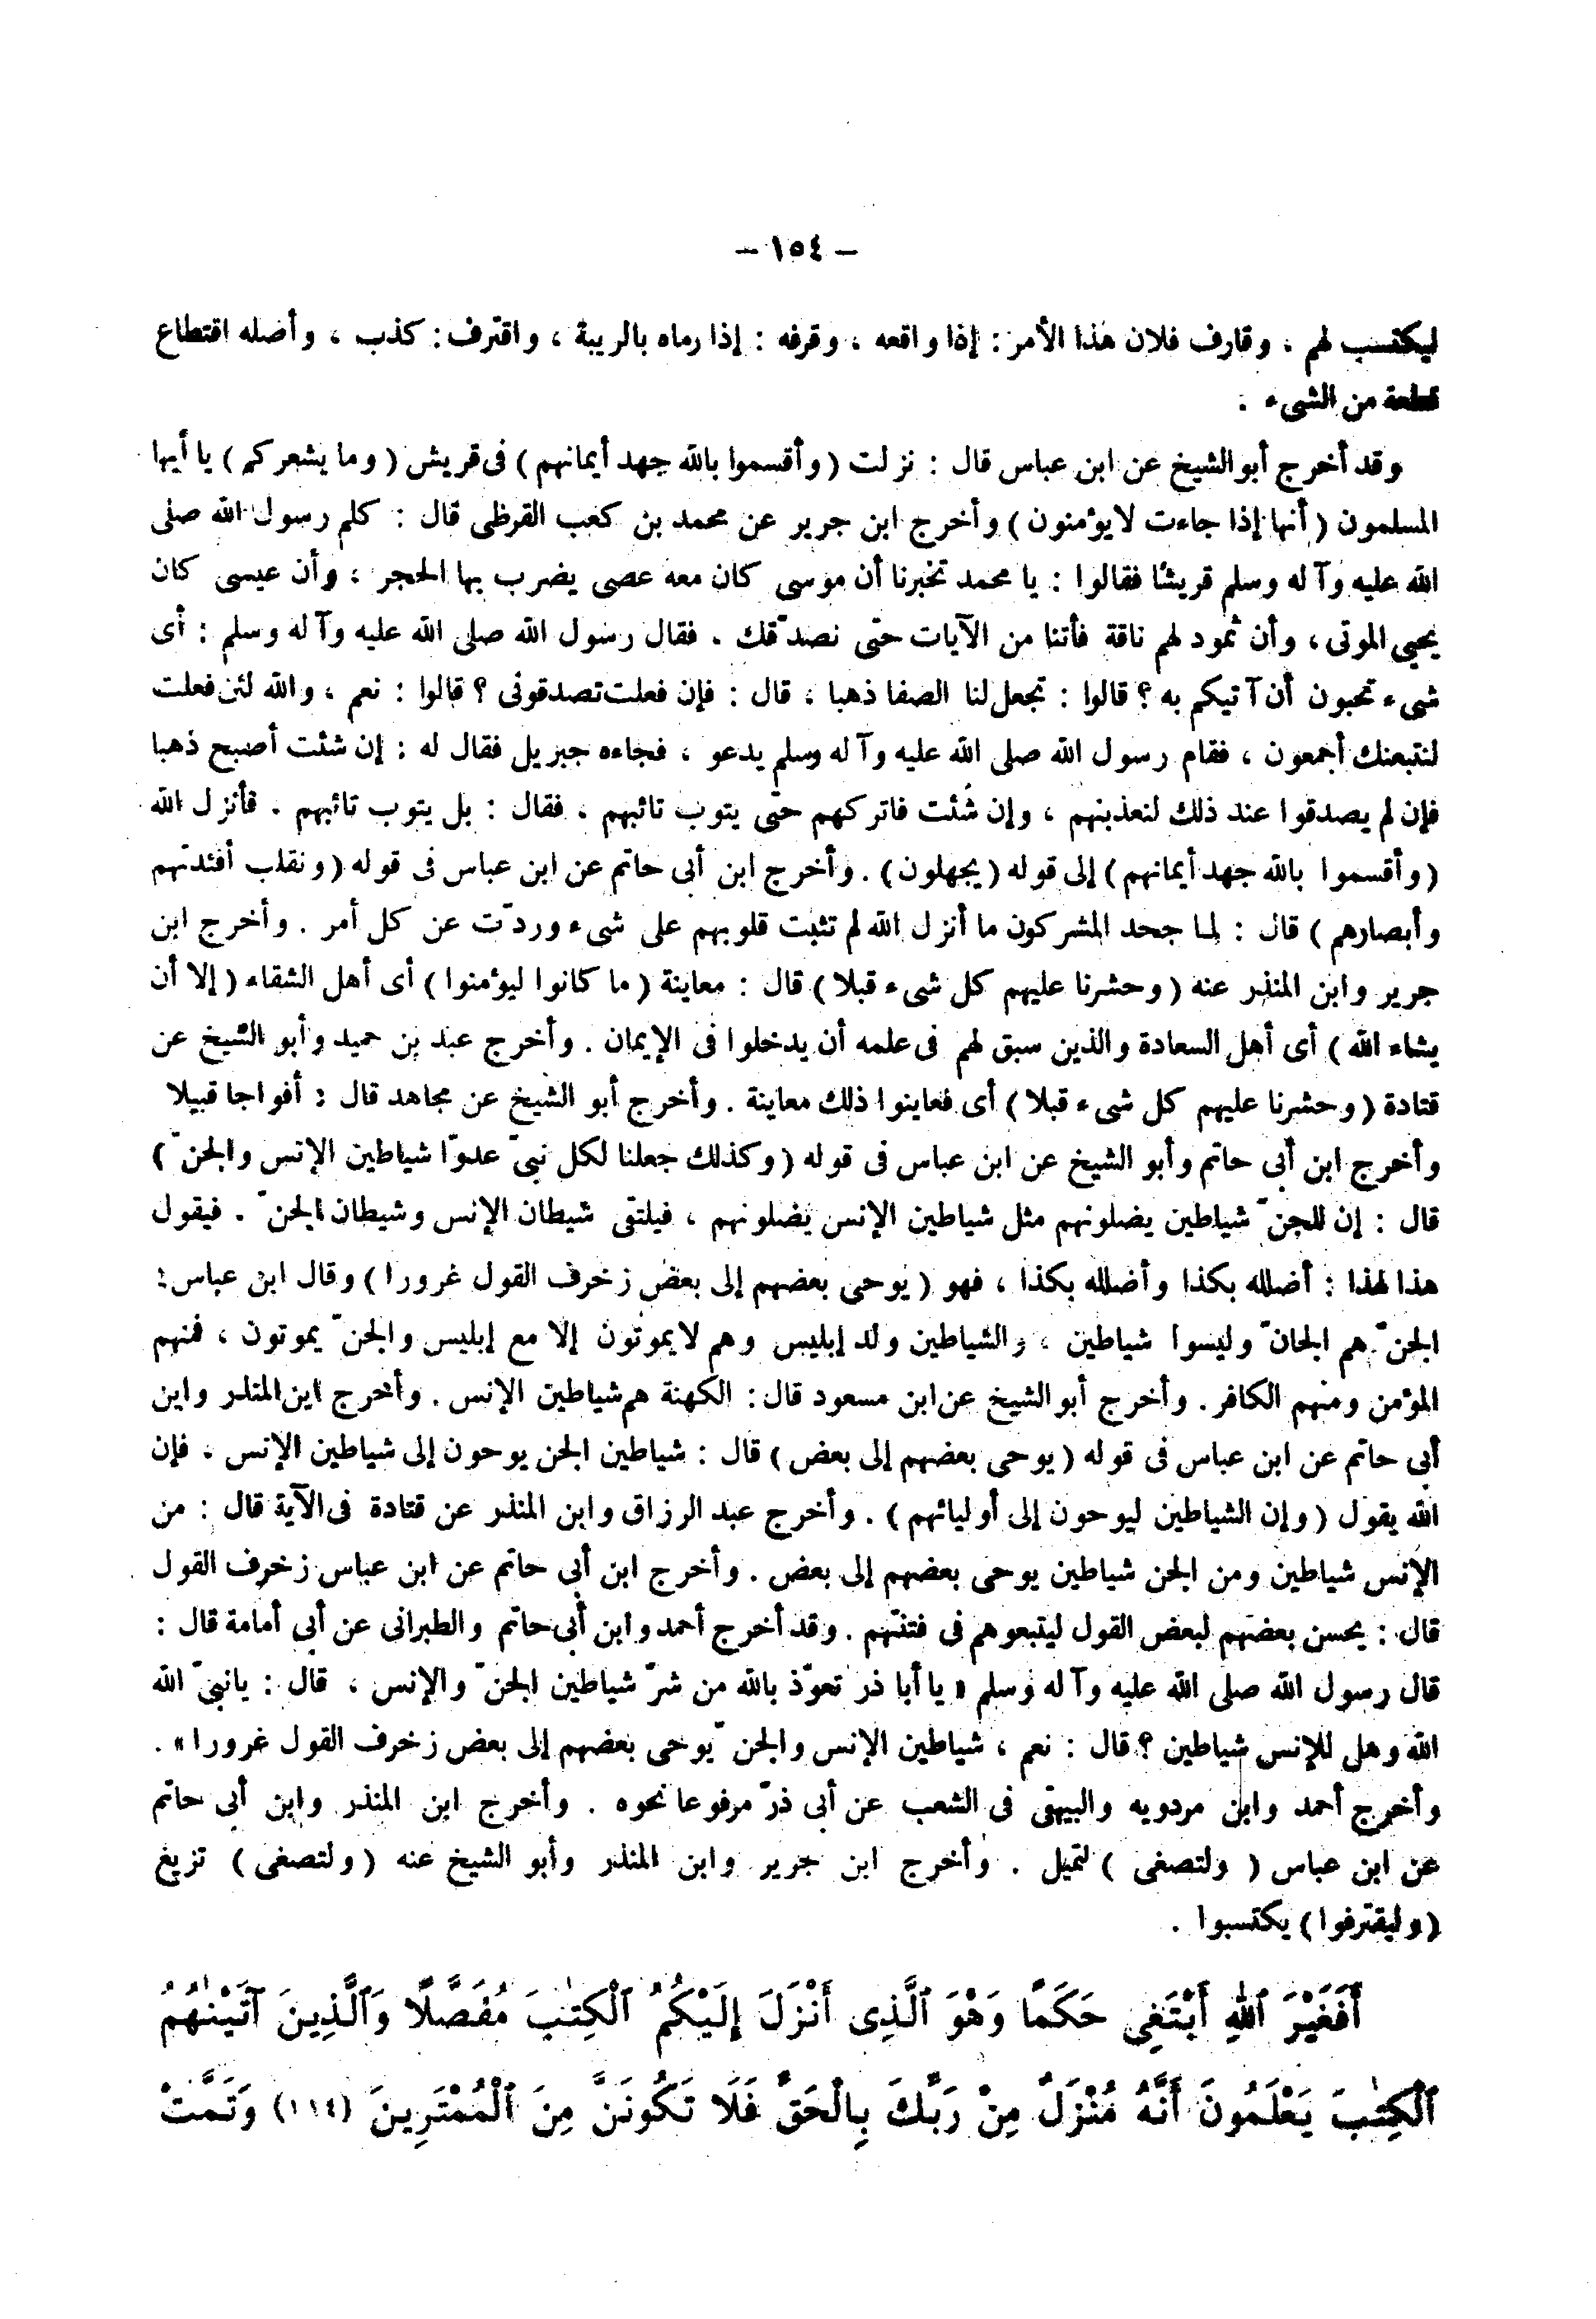 – ١٥٤ –
ليكتسب لهم ، وقارف فلان هذا الأمر : إذا واقعه ، وقرفه : إذا رماه بالريبة ، واقترف : كذب ، وأصله اقتطاع
قطعة من الشىء .
وقد أخرج أبو الشيخ عن ابن عباس قال : نزلت ( وأقسموا بالله جهد أيمانهم ) فى قريش ( وما يشعركم ) يا أيها
المسلمون ( أنها إذا جاءت لا يؤمنون ) وأخرج ابن جرير عن محمد بن كعب القرظى قال : كلم رسول الله صلى
الله عليه وآ له وسلم قريشا فقالوا : يا محمد تخبرنا أن موسى كان معه عصى يضرب بها الحجر ، وأن عيسى كان
يحيى الموتى ، وأن ثمود لهم ناقة فأتنا من الآيات حتى نصدّقك . فقال رسول الله صلى الله عليه وآ له وسلم : أى
شىء تحبون أن آ تيكم به ؟ قالوا : تجعل لنا الصفا ذهبا ، قال : فإن فعلت تصدقونى ؟ قالوا : نعم ، والله لئن فعلت
لنتبعنك أجمعون ، فقام رسول الله صلى الله عليه وآ له وسلم يدعو ، فجاءه جبريل فقال له : إن شئت أصبح ذهبا
فإن لم يصدقوا عند ذلك لنعذبنهم ، وإن شئت فاتركهم حتى يتوب تائبهم ، فقال : بل يتوب تائبهم . فأنزل الله
( وأقسموا بالله جهد أيمانهم ) إلى قوله ( يجهلون ) . وأخرج ابن أبى حاتم عن ابن عباس فى قوله ( ونقلب أفئدتهم
وأبصارهم ) قال : لما جحد المشركون ما أنزل الله لم تثبت قلوبهم على شىء وردّت عن كل أمر . وأخرج ابن
جرير وابن المنذر عنه ( وحشرنا عليهم كل شىء قبلا ) قال : معاينة ( ما كانوا ليؤمنوا ) أى أهل الشقاء ( إلا أن
يشاء الله ) أى أهل السعادة والذين سبق لهم فى علمه أن يدخلوا فى الإيمان . وأخرج عبد بن حميد وأبو الشيخ عن
قتادة ( وحشرنا عليهم كل شىء قبلا ) أى فعاينوا ذلك معاينة . وأخرج أبو الشيخ عن مجاهد قال : أفواجا قبيلا
وأخرج ابن أبى حاتم وأبو الشيخ عن ابن عباس فى قوله ( وكذلك جعلنا لكل نبىّ عدوّا شياطين الإنس والجنّ )
قال : إن للجنّ شياطين يضلونهم مثل شياطين الإنس يضلونهم ، فيلتقى شيطان الإنس وشيطان الجنّ . فيقول
هذا لهذا : أضلله بكذا وأضلله بكذا ، فهو ( يوحى بعضهم إلى بعض زخرف القول غرورا ) وقال ابن عباس :
الجنّ هم الجانّ وليسوا شياطين ، والشياطين ولد إبليس وهم لا يموتون إلا مع إبليس والجنّ يموتون ، فمنهم
المؤمن ومنهم الكافر . وأخرج أبو الشيخ عن ابن مسعود قال : الكهنة هم شياطين الإنس . وأخرج ابن المنذر وابن
أبى حاتم عن ابن عباس فى قوله ( يوحى بعضهم إلى بعض ) قال : شياطين الجن يوحون إلى شياطين الإنس ، فإن
الله يقول ( وإن الشياطين ليوحون إلى أوليائهم ) . وأخرج عبد الرزاق وابن المنذر عن قتادة فى الآية قال : من
الإنس شياطين ومن الجن شياطين يوحى بعضهم إلى بعض . وأخرج ابن أبى حاتم عن ابن عباس زخرف القول
قال : يحسن بعضهم لبعض القول ليتبعوهم فى فتنتهم . وقد أخرج أحمد وابن أبى حاتم والطبرانى عن أبى أمامة قال :
قال رسول الله صلى الله عليه وآ له وسلم « يا أبا ذر تعوّذ بالله من شرّ شياطين الجنّ والإنس ، قال : يا نبىّ الله
الله وهل للإنس شياطين ؟ قال : نعم ، شياطين الإنس والجنّ يوحى بعضهم إلى بعض زخرف القول غرورا » .
وأخرج أحمد وابن مردويه والبيهقى فى الشعب عن أبى ذرّ مرفوعا نحوه . وأخرج ابن المنذر وابن أبى حاتم
عن ابن عباس ( ولتصغى ) لتميل . وأخرج ابن جرير وابن المنذر وأبو الشيخ عنه ( ولتصغى ) تزيغ
( وليقترفوا ) يكتسبوا .
أَفَغَيْرَ ٱللهِ أَبْتَغِى حَكَمًا وَهْوَ ٱلَّذِى أَنْزَلَ إِلَيْكُمُ ٱلْكِتٰبَ مُفَصَّلًا وَٱلَّذِينَ آتَيْنٰهُمُ
ٱلْكِتٰبَ يَعْلَمُونَ أَنَّهُ مُنْزَلٌ مِنْ رَبِّكَ بِالْحَقِّ فَلَا تَكُونَنَّ مِنَ ٱلْمُمْتَرِينَ (١١٤) وَتَمَّتْ